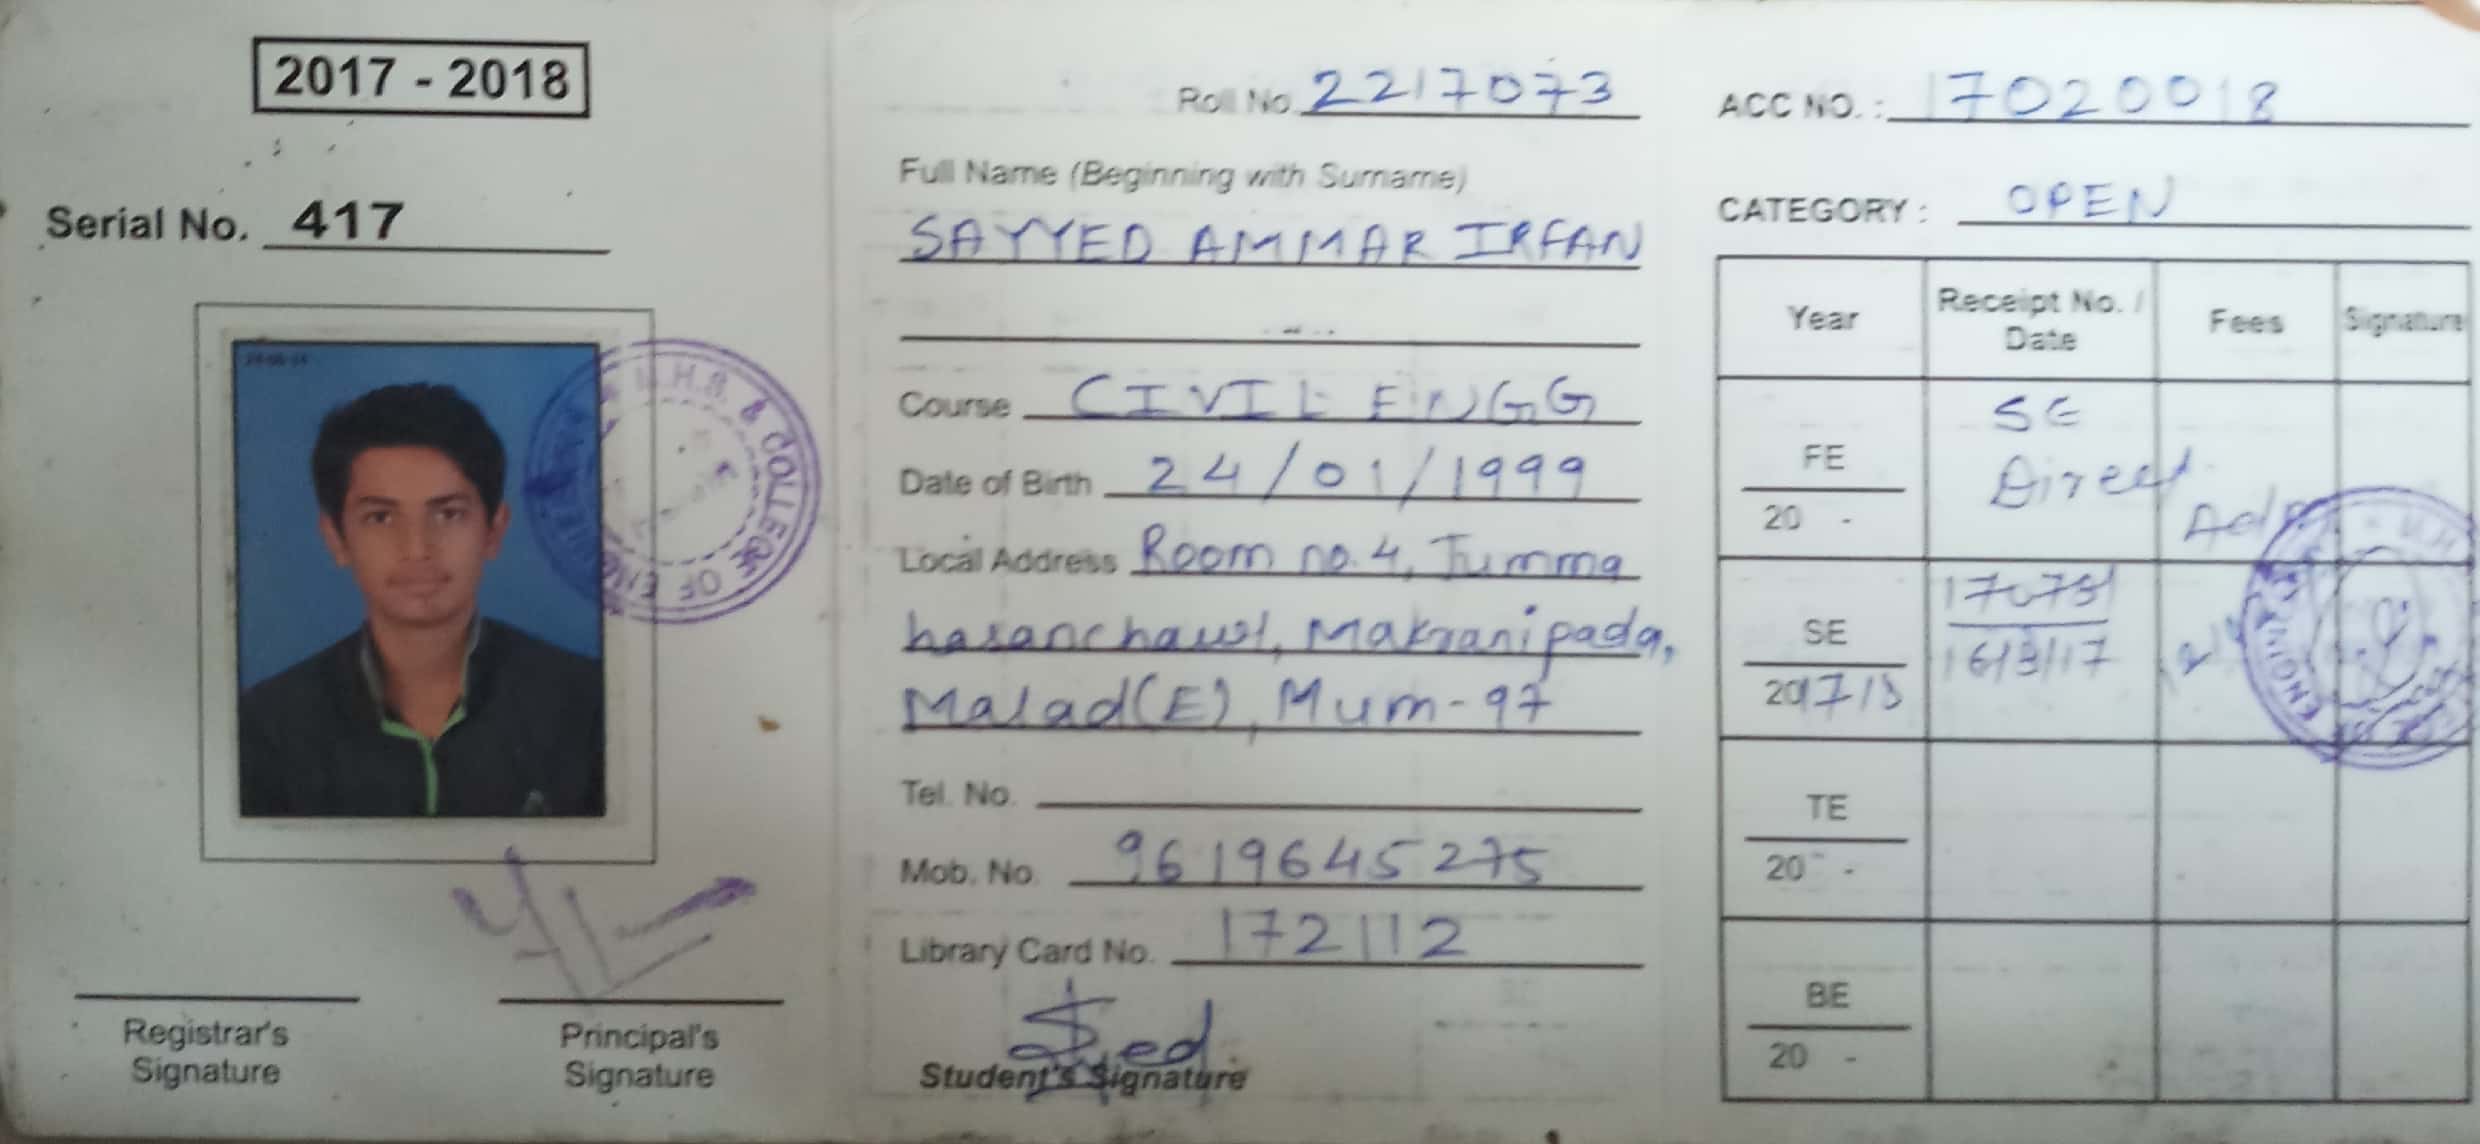 2017 - 2018
Serial No. 417
M.H.S. & COLLEGE OF ENG
Registrar's
Signature
Principal's
Signature
Roll No. 2217073
Full Name (Beginning with Surname)
SAYYED AMMAR IRFAN
Course CIVIL ENGG
Date of Birth 24/01/1999
Local Address Room no.4, Jumma
hasanchawl, Makranipada,
Malad(E), Mum-97
Tel. No.
Mob. No. 9619645275
Library Card No. 172112
Syed
Student's Signature
ACC NO. : 17020018
CATEGORY : OPEN
Year Receipt No. / Date Fees Signature
FE
20 -
SE
Direct
SE
2017/18
16/8/17
TE
20 -
BE
20 -